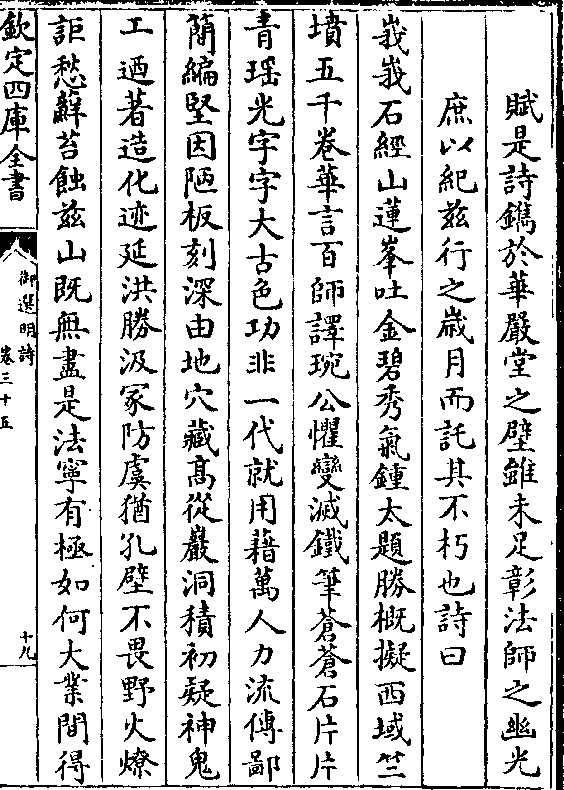 賦是詩鐫於華嚴堂之壁雖未足彰法師之幽光
庶以紀茲行之歲月而託其不朽也詩曰
峩峩石經山蓮峯吐金碧秀氣鍾太題勝概擬西域竺
墳五千卷華言百師譯琬公懼變滅鐵筆蒼蒼石片片
青瑤光字字大古色功非一代就用藉萬人力流傳鄙
簡編堅因陋板刻深由地穴藏髙從巖洞積初疑神鬼
工迺著造化迹延洪勝汲冢防虞猶孔壁不畏野火燎
詎愁蘚苔蝕兹山既無盡是法寧有極如何大業間得
欽定四庫全書
御選明詩
卷三十五
十九